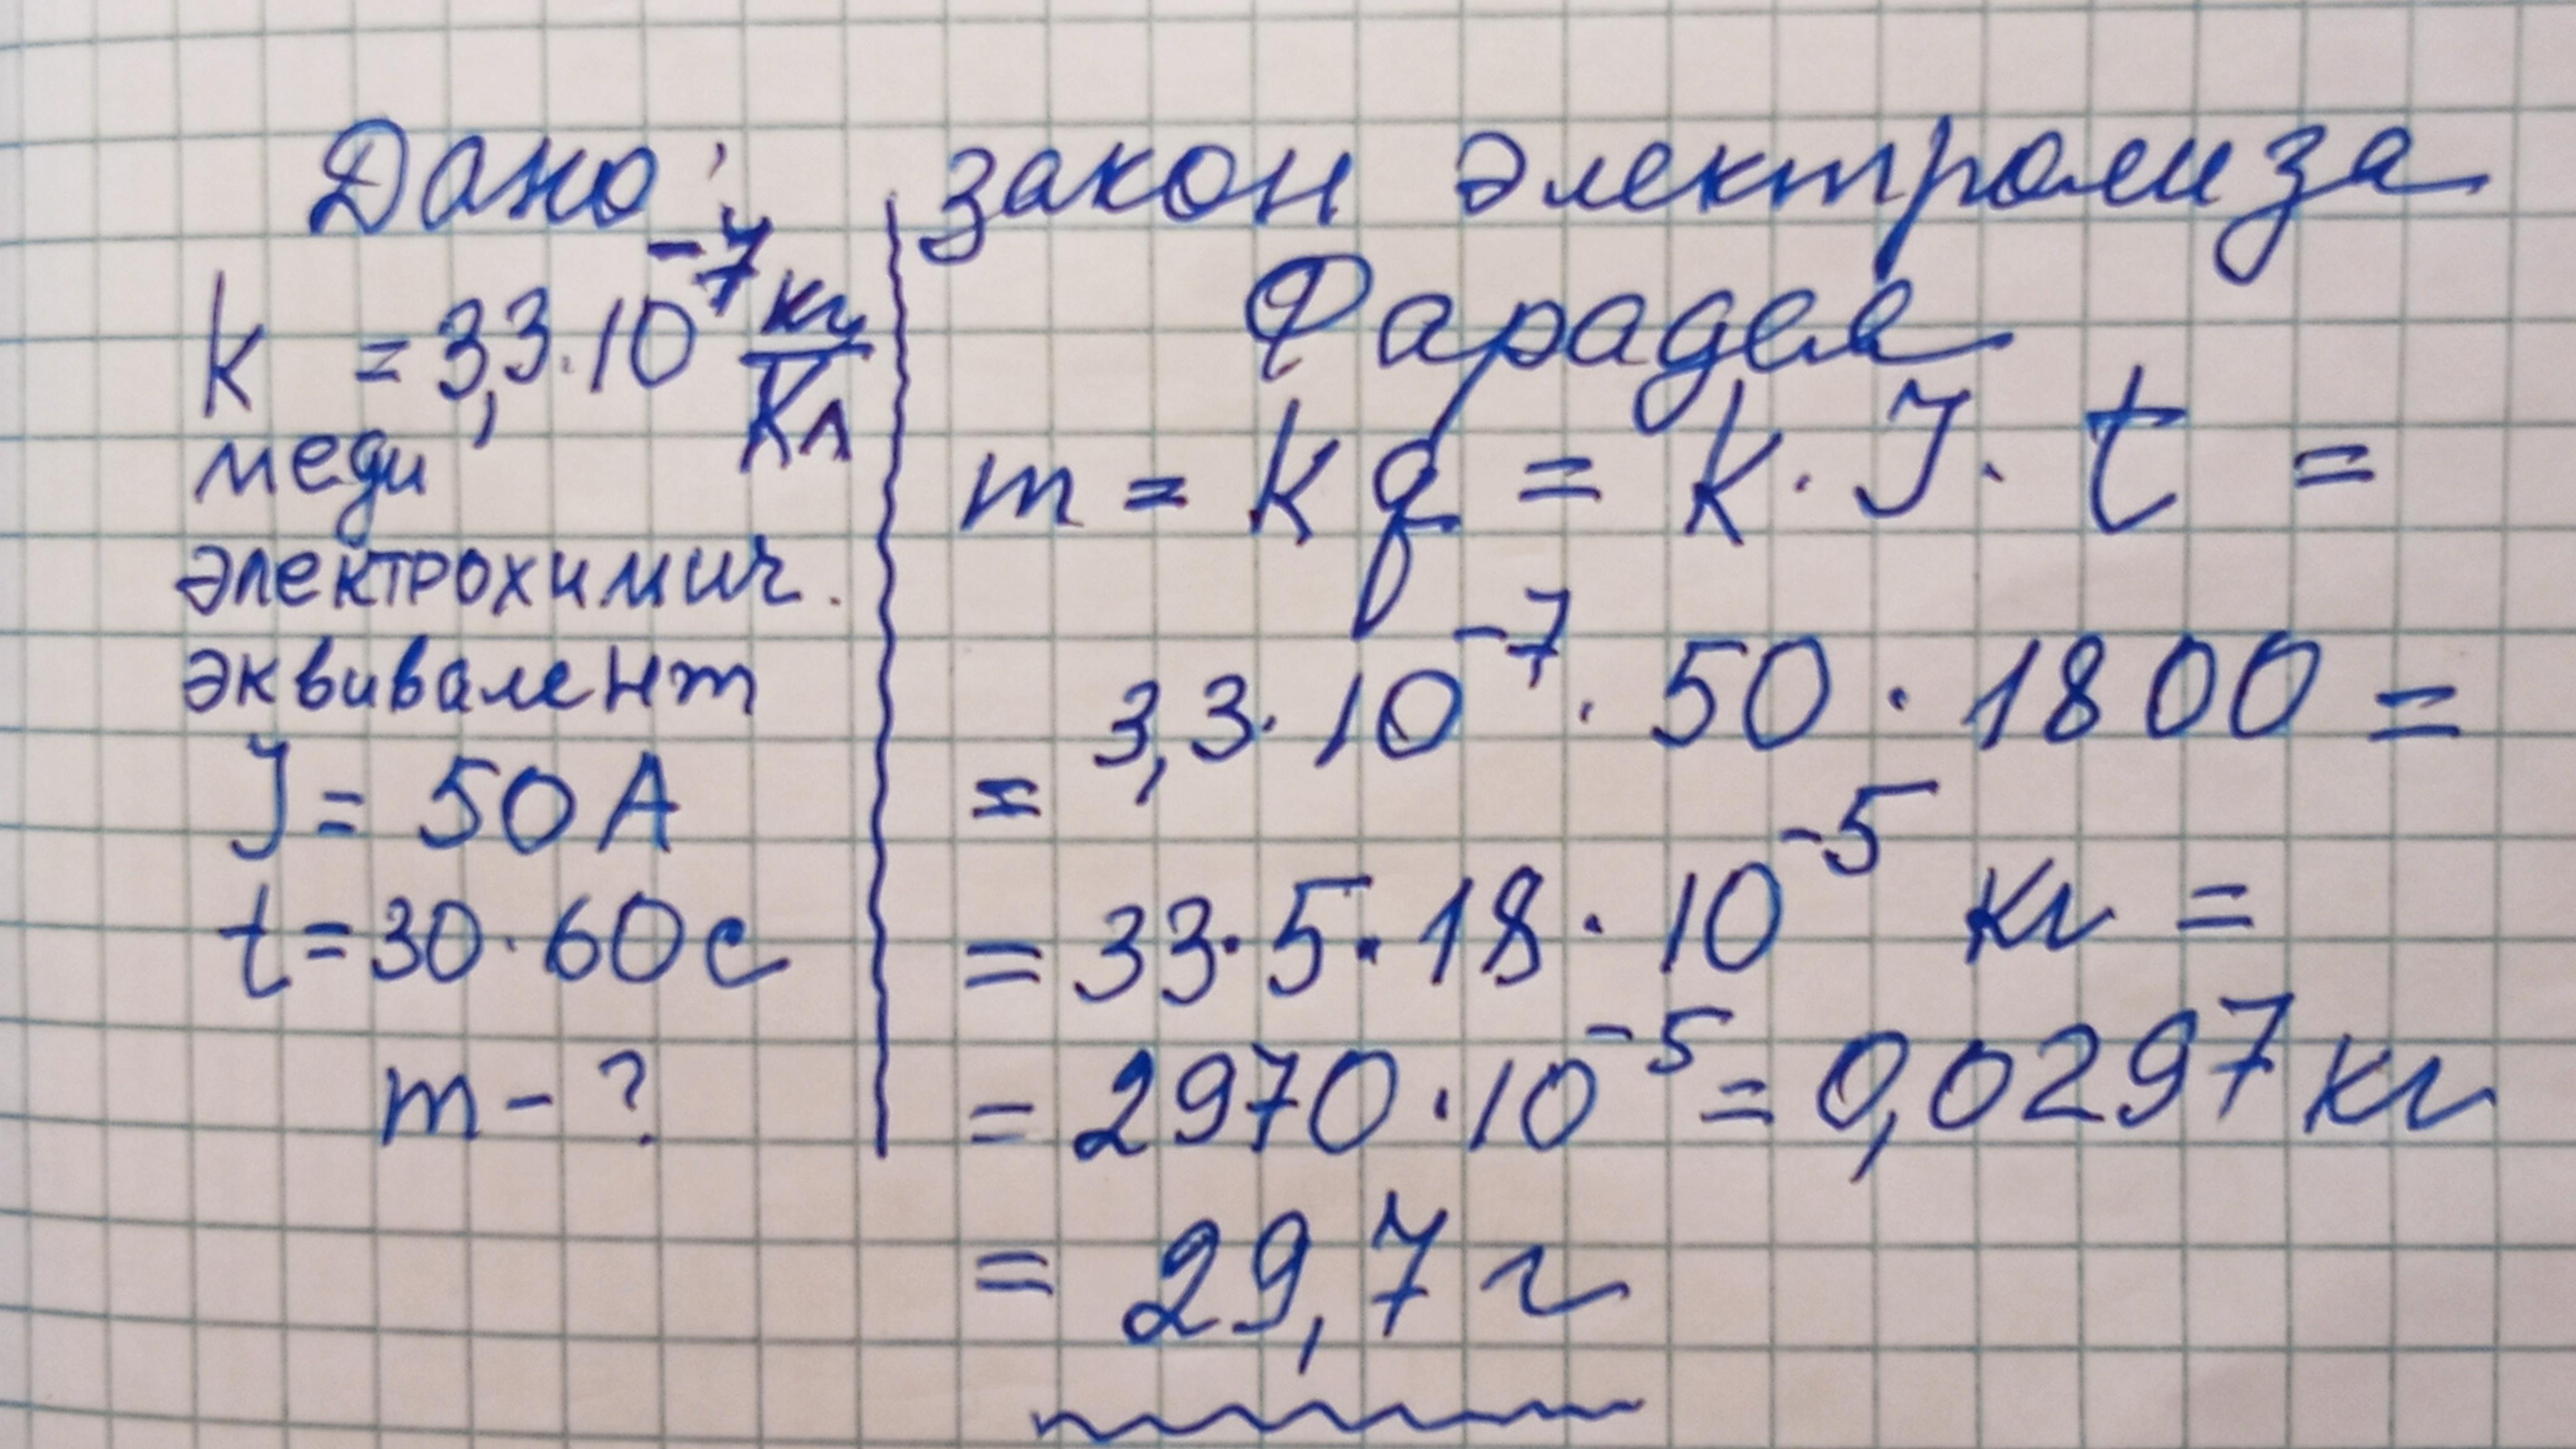 Дано:
k = 3,3·10⁻⁷ кг/Кл
меди
электрохимич.
эквивалент
J = 50 А
t = 30·60 с
m - ?
закон электролиза
Фарадея
m = kq = k·J·t =
= 3,3·10⁻⁷·50·1800 =
= 33·5·18·10⁻⁵ кг =
= 2970·10⁻⁵ = 0,0297 кг
= 29,7 г